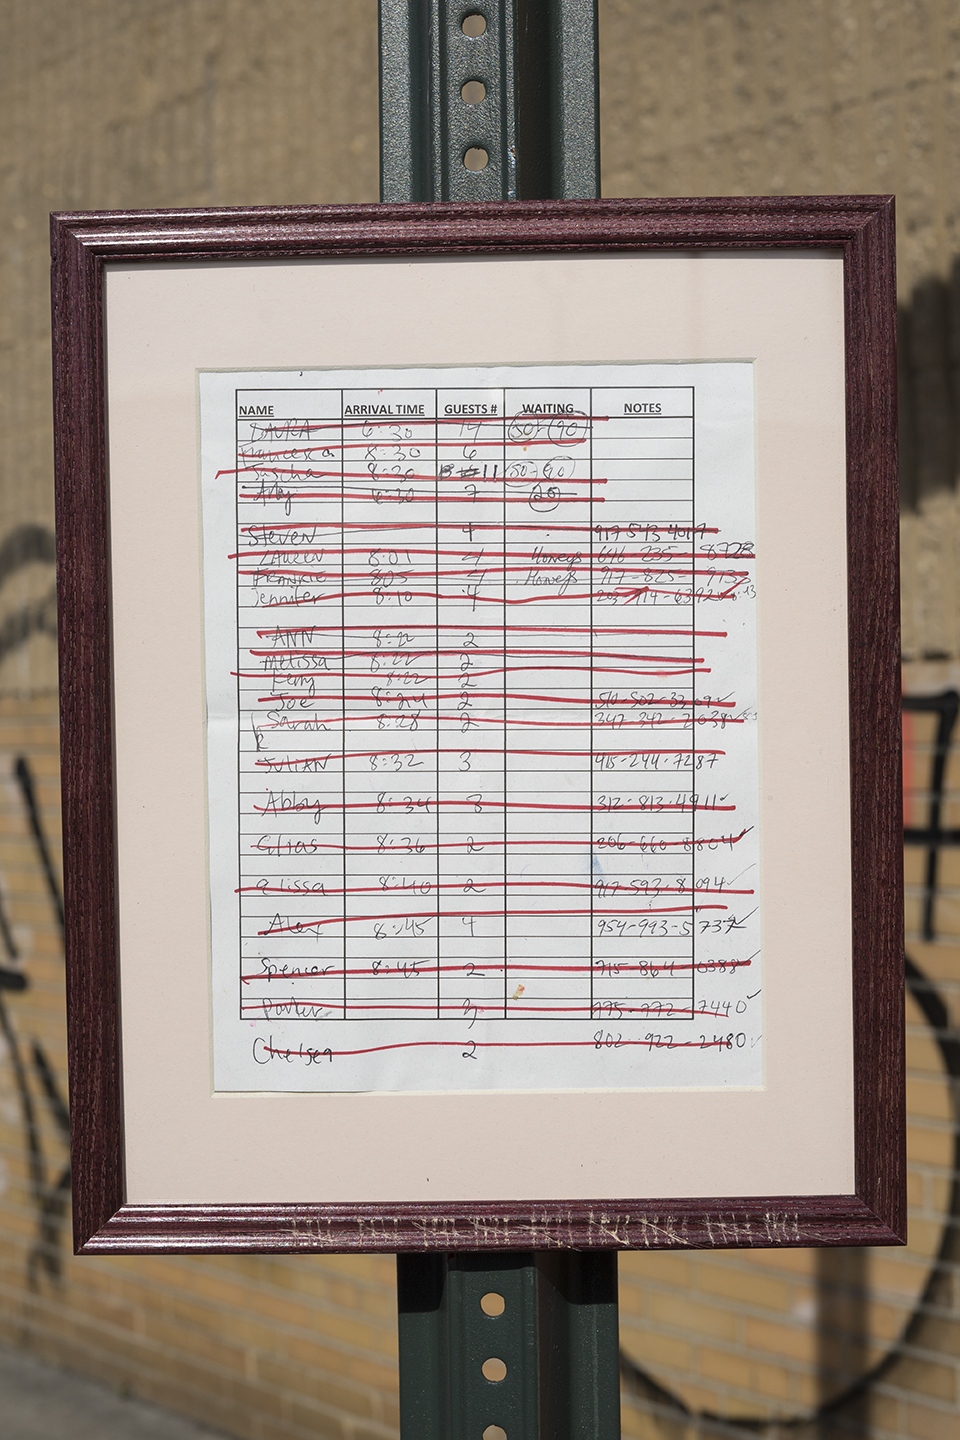 NAME ARRIVAL TIME GUESTS # WAITING NOTES
LAURA 6:30 14
Francesca 8:30 6
8:30 11
7 20
Steven 4 917 543 4017
LAUREN 8:01 4 Honeys 646-235-
FRANKIE 805 4 Honeys 917-825-
Jennifer 8:10 4
ANN 8:22 2
Melissa 8:22 2
Kerry 8:22 2
Joe 8:24 2 510-502-
Sarah 8:28 2 347-342-2038
JULIAN 8:32 3 415-244-7287
Abby 8:34 3 312-813-4911
Elias 8:36 2 206-660-8804
elissa 8:40 2 917-593-8094
Alex 8:45 4 954-993-5737
Spencer 8:45 2 715-864-0388
775-772-7440
Chelsea 2 802-922-2480